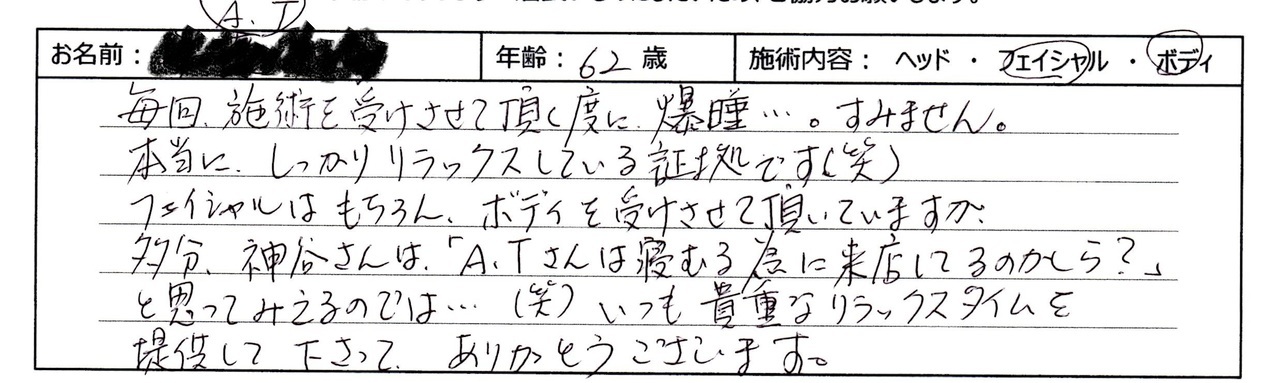 A.T
ご協力お願いします。
お名前： 年齢：62歳 施術内容： ヘッド ・ フェイシャル ・ ボディ
毎回、施術を受けさせて頂く度に、爆睡…。すみません。
本当に、しっかりリラックスしている証拠です(笑)
フェイシャルはもちろん、ボディを受けさせて頂いていますが、
多分、神谷さんは、「A.Tさんは寝むる為に来店してるのかしら？」
と思ってみえるのでは…(笑) いつも貴重なリラックスタイムを
提供して下さって、ありがとうございます。